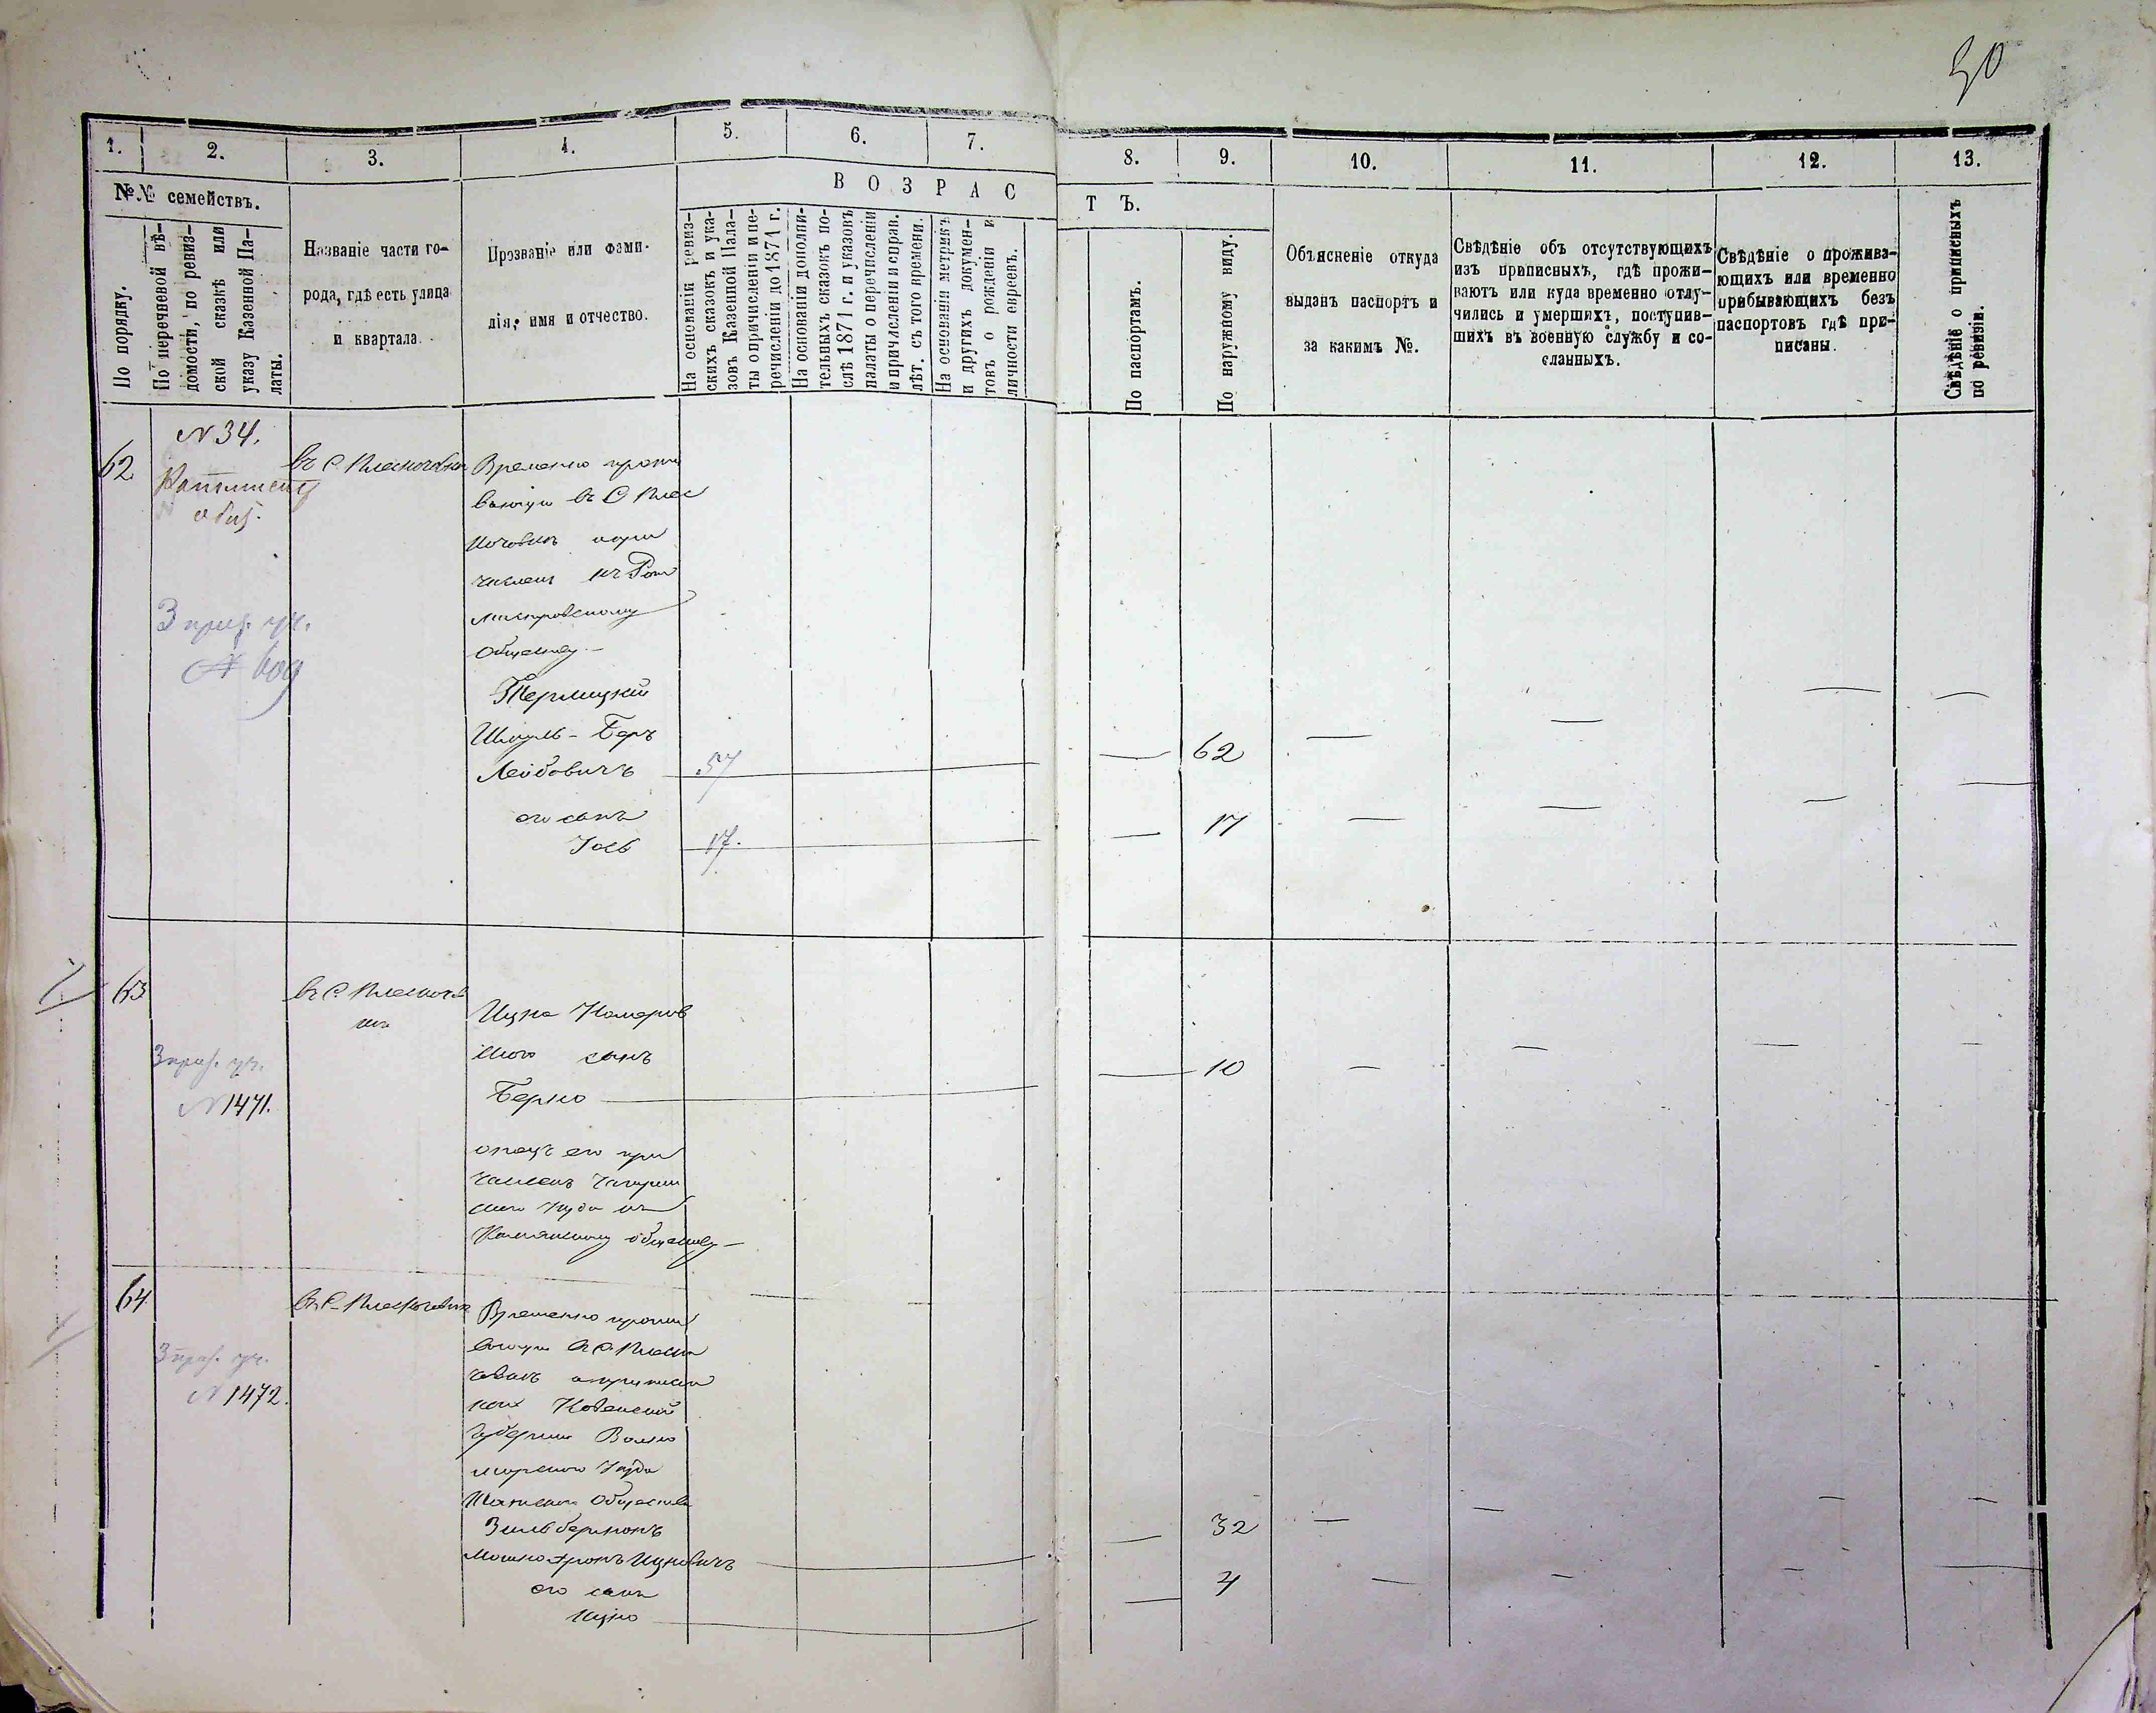 50
1. 2. 3. 4. 5. 6. 7. 8. 9. 10. 11. 12. 13.
№№ семействъ.
В О З Р А С Т Ъ.
По порядку.
По перечневой вѣ-
домости, по ревиз-
ской сказкѣ или
указу Казенной Па-
латы.
Названіе части го-
рода, гдѣ есть улица
и квартала.
Прозваніе или фами-
лія, имя и отчество.
На основаніи ревиз-
скихъ сказокъ и ука-
зовъ Казенной Пала-
ты о причисленіи и пе-
речисленіи до 1871 г.
На основаніи дополни-
тельныхъ сказокъ по-
слѣ 1871 г. и указовъ
палаты о перечисленіи
и причисленіи и справ.
лѣт. съ того времени.
На основаніи метрикъ
и другихъ докумен-
товъ о рожденіи и
личности евреевъ.
По паспортамъ.
По наружному виду.
Объясненіе откуда
выданъ паспортъ и
за какимъ №.
Свѣдѣніе объ отсутствующихъ
изъ приписныхъ, гдѣ прожи-
ваютъ или куда временно отлу-
чились и умершихъ, поступив-
шихъ въ военную службу и со-
сланныхъ.
Свѣдѣніе о прожива-
ющихъ или временно
прибывающихъ безъ
паспортовъ гдѣ при-
писаны.
Свѣдѣніе о приписныхъ
по ревизіи.
62
N 34.
3 приз. уч.
N 609
въ С. Плескачовки
Временно прожи
вающи въ С Плес
качовкѣ и при
числены къ Рот
мистровскому
Обществу
Шмуль-Беръ
Лейбовичъ 57 — 62
его сынъ
Іось 17. — 17
63
3 приз. уч.
N 1471.
въ С. Плескачов
ки
Ицка Комаров
скаго сынъ
Берко — 10
отецъ его при
численъ Чигирин
скаго Уѣзда къ
Каменскому обществу
64
3 приз. уч.
N 1472.
въ С. Плескачовки
Временно прожи
вающи въ С. Плеска
човкѣ
Ковенской
Губерніи Вилко
мирскаго Уѣзда
Общества
Зильберманъ
Мошко Аронъ Ицковичъ — 32
его сынъ
Ицко — 4